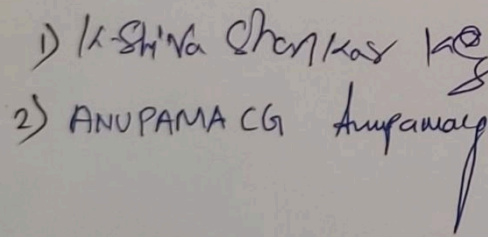 1) K. Shiva Shankar
2) ANUPAMA CG Anupamacg